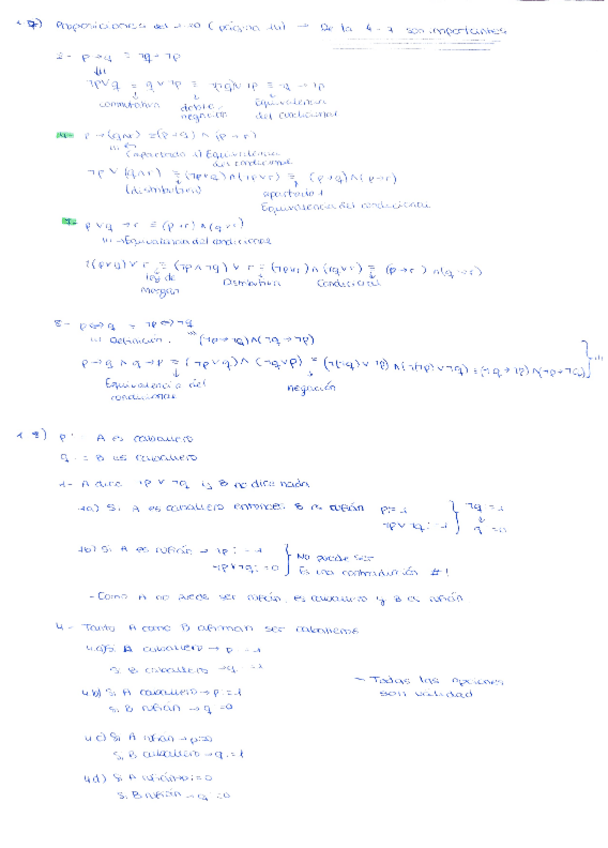 Proposiciones del → De la 4-7 son importantes
2- p→q ≡ ¬q→¬p
¬p∨q ≡ q∨¬p ≡ ≡ ¬q→¬p
conmutativa doble negación Equivalencia del condicional
4- p→(q∧r) ≡ (p→q)∧(p→r)
(apartado 1) Equivalencia del condicional
¬p∨(q∧r) ≡ (¬p∨q)∧(¬p∨r) ≡ (p→q)∧(p→r)
(distributiva) apartado 1
Equivalencia del condicional
7- p∨q→r ≡ (p→r)∧(q→r)
Equivalencia del condicional
¬(p∨q)∨r ≡ (¬p∧¬q)∨r ≡ (¬p∨r)∧(¬q∨r) ≡ (p→r)∧(q→r)
ley de Morgan Distributiva Condicional
8- p↔q ≡ ¬p↔¬q
Definición. (¬p→¬q)∧(¬q→¬p)
p→q∧q→p ≡ (¬p∨q)∧(¬q∨p) ≡
Equivalencia del condicional negación
p: A es caballero
q: B es caballero
1- A dice ¬p∨¬q y B no dice nada
1a) Si A es caballero entonces B es rufián p:=1 ¬q=1
¬p∨¬q:=1 q=0
1b) Si A es rufián → ¬p:=1 No puede ser
¬p∨¬q:=0 Es una contradicción #!
- Como A no puede ser rufián, es caballero y B es rufián
4- Tanto A como B afirman ser caballeros
4a) Si A caballero → p:=1
Si B caballero → q:=1
- Todas las opciones
son validad
4b) Si A caballero → p:=1
Si B rufián → q:=0
4c) Si A rufián → p:=0
Si B caballero → q:=1
4d) Si A rufián → p:=0
Si B rufián → q:=0